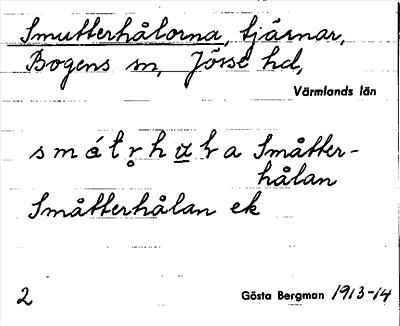 Smutterhålorna, tjärnar,
Bogens sn, Jösse hd,
Värmlands län
smátr̥hu̲ɽa Småtter-
hålan
Småtterhålan ek
2
Gösta Bergman 1913-14